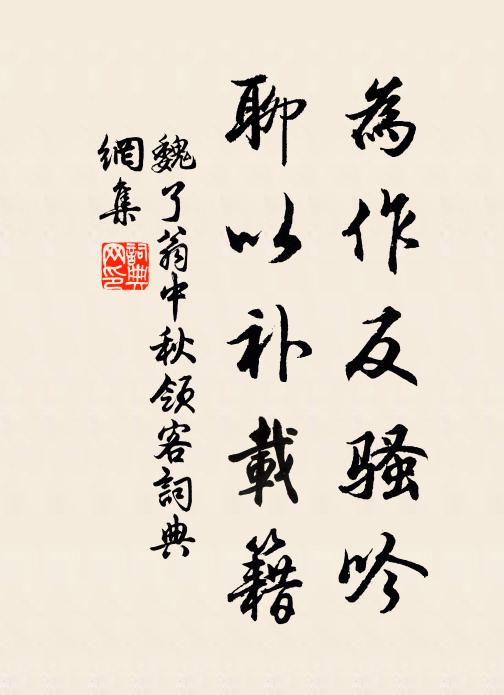 為作反騷吟
聊以补載籍
魏了翁中秋領客詞典
網集
詞典网印